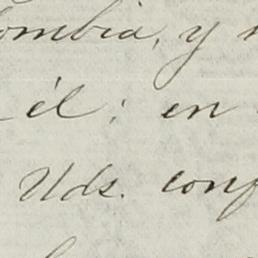 ombia, y
él; en
Uds. conf